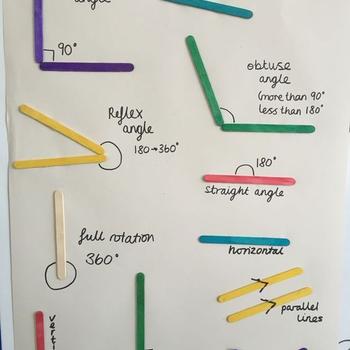 angle
90°
obtuse
angle
(more than 90°
less than 180°)
Reflex
angle
180→360°
180°
straight angle
full rotation
360°
horizontal
parallel
lines